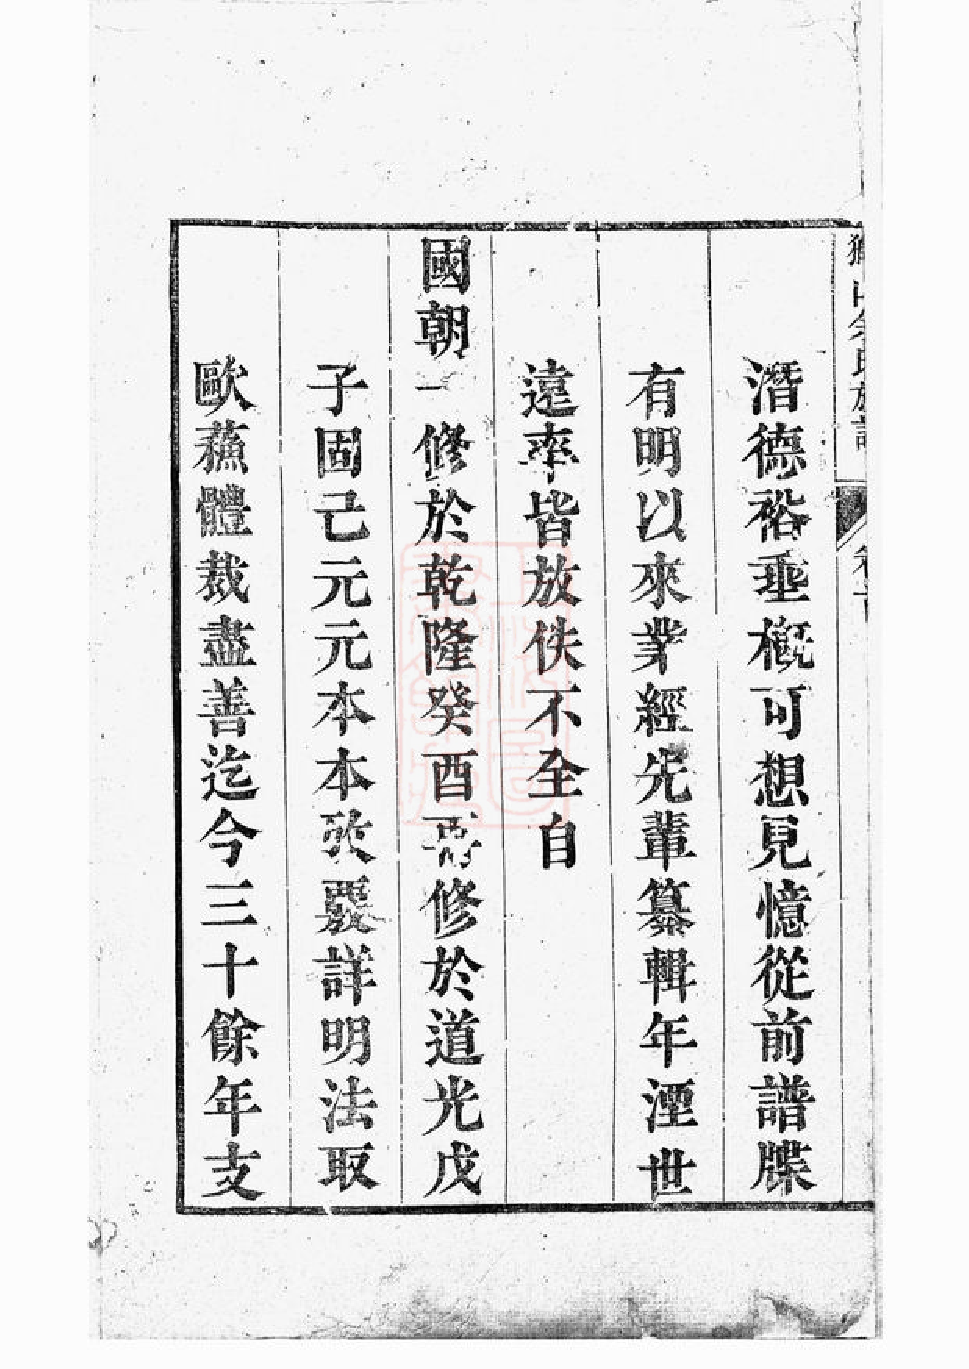 山余氏族譜
卷首
潛德裕垂概可想見憶從前譜牒
有明以來業經先輩纂輯年湮世
遠率皆放佚不至自
國朝一修於乾隆癸酉再修於道光戊
子固已元元本本茨叢詳明法取
歐蘓體裁盡善迄今三十餘年支